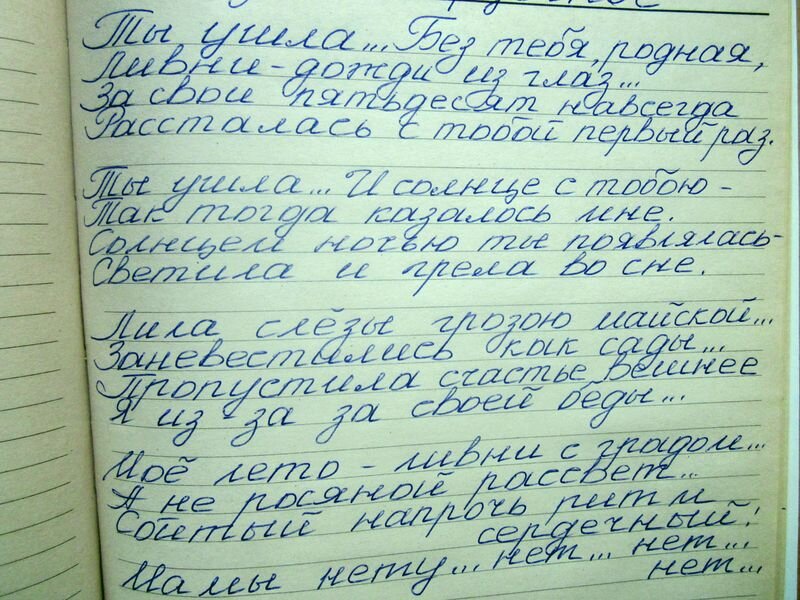 Ты ушла... Без тебя, родная,
Ливни-дожди из глаз...
За свои пятьдесят навсегда
Рассталась с тобой первый раз.
Ты ушла... И солнце с тобою -
Так тогда казалось мне.
Солнцем ночью ты появлялась-
Светила и грела во сне.
Лила слёзы грозою майской...
Заневестились как сады...
Пропустила счастье вешнее
Я из-за за своей беды...
Моё лето - ливни с градом...
А не росяной рассвет...
Сбитый напрочь ритм
сердечный!
Мамы нету... нет... нет...
нет...